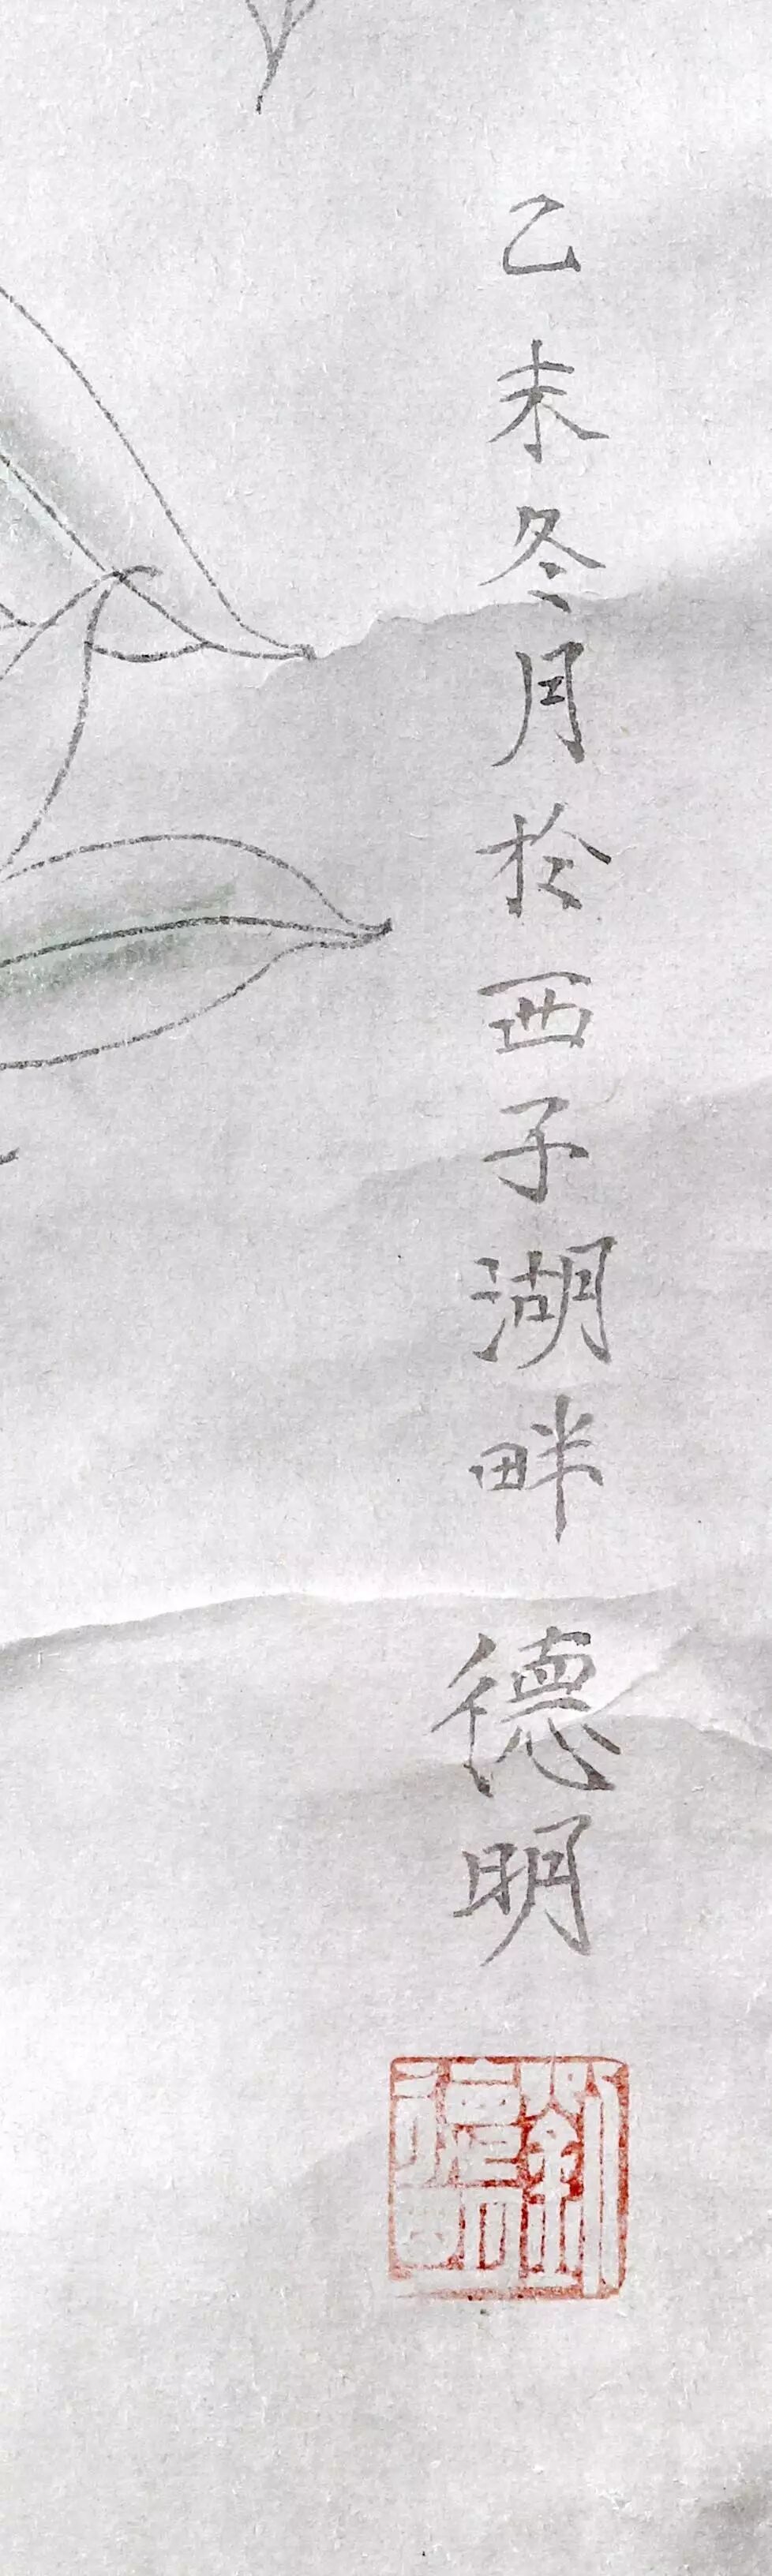 乙未冬月於西子湖畔 德明
劉德明